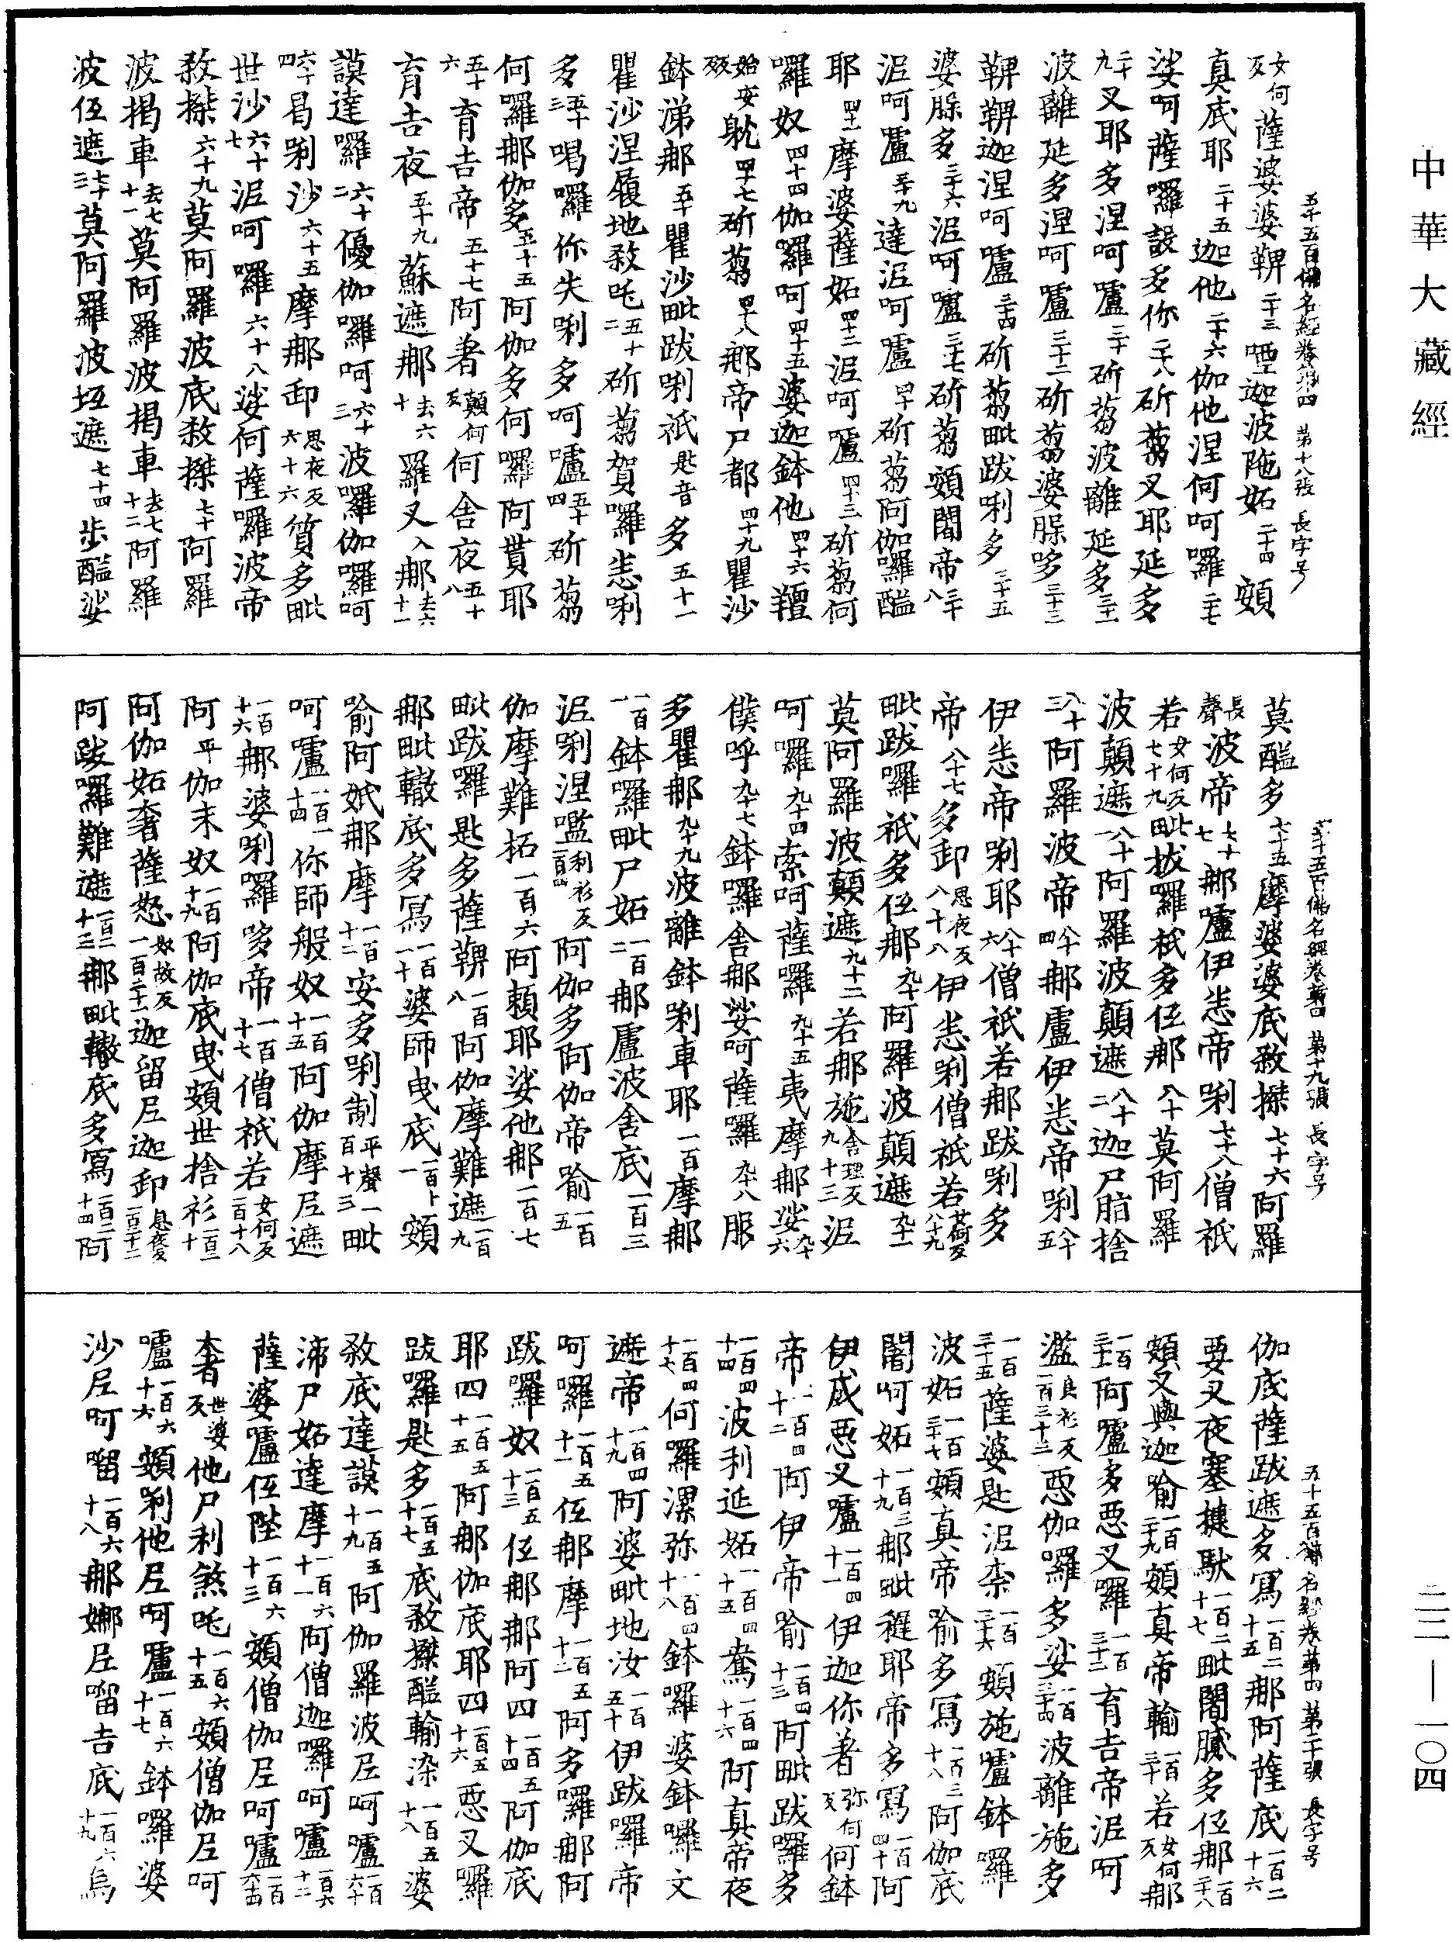 中華大藏經
二二—一〇四
五千五百佛名經卷第四 第十八張 長字号
女何反薩婆婆鞞二十三堙迦波陁妬二十四頞
真底耶二十五迦他二十六伽他涅何呵囉二十七
娑呵薩囉設多你二十八斫蒭叉耶延多
二十九叉耶多涅呵嚧三十斫蒭波離延多三十一
波離延多涅呵嚧三十二斫蒭婆脲哆三十三
鞞鞞迦涅呵嚧三十四斫蒭毗跋唎多三十五
婆脲多三十六泥呵嚧三十七斫蒭頞闇帝三十八
泥呵嚧三十九達泥呵嚧四十斫蒭阿伽囉醯
耶四十一摩婆薩妬四十二泥呵嚧四十三斫蒭何
囉奴四十四伽囉呵四十五婆迦鉢他四十六羶
始安反躭四十七斫蒭四十八那帝尸都四十九瞿沙
鉢涕那五十瞿沙毗跋唎祇匙音多五十一
瞿沙涅履地敎吒五十二斫蒭賀囉恚唎
多五十三喝囉你失唎多呵嚧五十四斫蒭
何囉那伽多五十五阿伽多何囉阿蕡耶
五十六育吉帝五十七阿著顛何反何舍夜五十八
育吉夜五十九蘇遮那去六十羅叉入那去六十一
謨達囉六十二優伽囉呵六十三波囉伽囉呵
六十四曷唎沙六十五摩那卸思夜反六十六質多毗
世沙六十七泥呵囉六十八娑何薩囉波帝
敎搩六十九莫阿羅波底敎搩七十阿羅
波揭車去七十一莫阿羅波揭車去七十二阿羅
波伍遮七十三莫阿羅波伍遮七十四步醯娑
五千五百佛名經卷第四 第十九張 長字号
莫醯多七十五摩婆婆底敎搩七十六阿羅
長聲波帝七十七那嚧伊恚帝唎七十八僧祇
若女何反七十九毗拔羅祇多伍那八十莫阿羅
波顛遮八十一阿羅波顛遮八十二迦尸脂捨
八十三阿羅波帝八十四那盧伊恚帝唎八十五
伊恚帝唎耶八十六僧祇若那跋唎多
帝八十七多卸思夜反八十八伊恚唎僧祇若女何反八十九
毗跋囉祇多伍那九十阿羅波顛遮九十一
莫阿羅波顛遮九十二若那施舍理反九十三泥
呵囉九十四索呵薩囉九十五夷摩那娑九十六
僕呼九十七鉢囉舍那娑呵薩囉九十八服
多瞿那九十九波離鉢唎車耶一百摩那
一百一鉢囉毗尸妬一百二那盧波舍底一百三
泥唎涅嚂利衫反一百四阿伽多阿伽帝喻一百五
伽摩難拓一百六阿頼耶娑他那一百七
毗跋羅匙多薩鞞一百八阿伽摩難遮一百九
那毗轍底多寫一百一十婆師曳底一百一十一頞
喻阿坻那摩一百一十二安多唎制平聲一百一十三毗
呵嚧一百一十四你師般奴一百一十五阿伽摩尼遮
一百一十六那婆唎囉哆帝一百一十七僧祇若女何反一百一十八
阿平伽末奴一百一十九阿伽底曳頞世捨衫一百二十
阿伽妬奢薩怒奴故反一百二十一迦留尼迦卸息夜反一百二十二
阿跋囉難遮一百二十三那毗轍底多寫一百二十四阿
五千五百佛名經卷第四 第二十張 長字号
伽底薩跋遮多寫一百二十五那阿薩底一百二十六
要叉夜塞揵馱一百二十七毗闍膩多伍那一百二十八
頞叉輿迦喻一百二十九頞真帝輸一百三十若女何反那
一百三十一阿嚧多惡叉羅一百三十二育吉帝泥呵
濫良衫反一百三十三惡伽囉多娑一百三十四波離施多
一百三十五薩婆匙泥柰一百三十六頞施嚧鉢囉
波妬一百三十七頞真帝喻多寫一百三十八阿伽底
闍呵妬一百三十九那毗程耶帝多寫一百四十阿
伊戍惡叉嚧一百四十一伊迦你著弥何反何鉢
帝一百四十二阿伊帝喻一百四十三阿毗跋囉多
一百四十四波利延妬一百四十五鴦一百四十六阿真帝夜
一百四十七何羅漯弥一百四十八鉢囉婆鉢囉文
遮帝一百四十九阿婆毗地汝一百五十伊跋囉帝
呵囉一百五十一伍那摩一百五十二阿多囉那阿
跋囉奴一百五十三伍那那阿四一百五十四阿伽底
耶四一百五十五阿那伽底耶四一百五十六惡叉囉
跋囉匙多一百五十七底敎搩醯輸染一百五十八婆
敎底達謨一百五十九阿伽羅波尼呵嚧一百六十
渧尸妬達摩一百六十一阿僧迦囉呵嚧一百六十二
薩婆嚧伍陛一百六十三頞僧伽尼呵嚧一百六十四
奢世婆反他尸利煞吒一百六十五頞僧伽尼呵
嚧一百六十六頞唎他尼呵嚧一百六十七鉢囉婆
沙尼呵㗚一百六十八那娜尼㗚吉底一百六十九烏